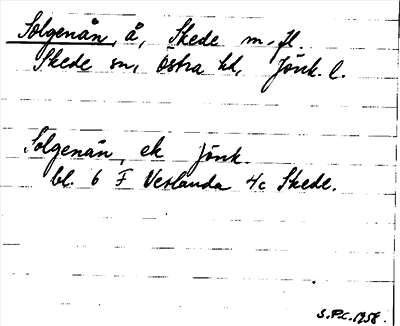 Solgenån, å, Skede m. fl.
Skede sn, Östra hd, Jönk. l.
Solgenån, ek Jönk.
bl. 6 F Vetlanda 4c Skede.
S.P.C. 1958.